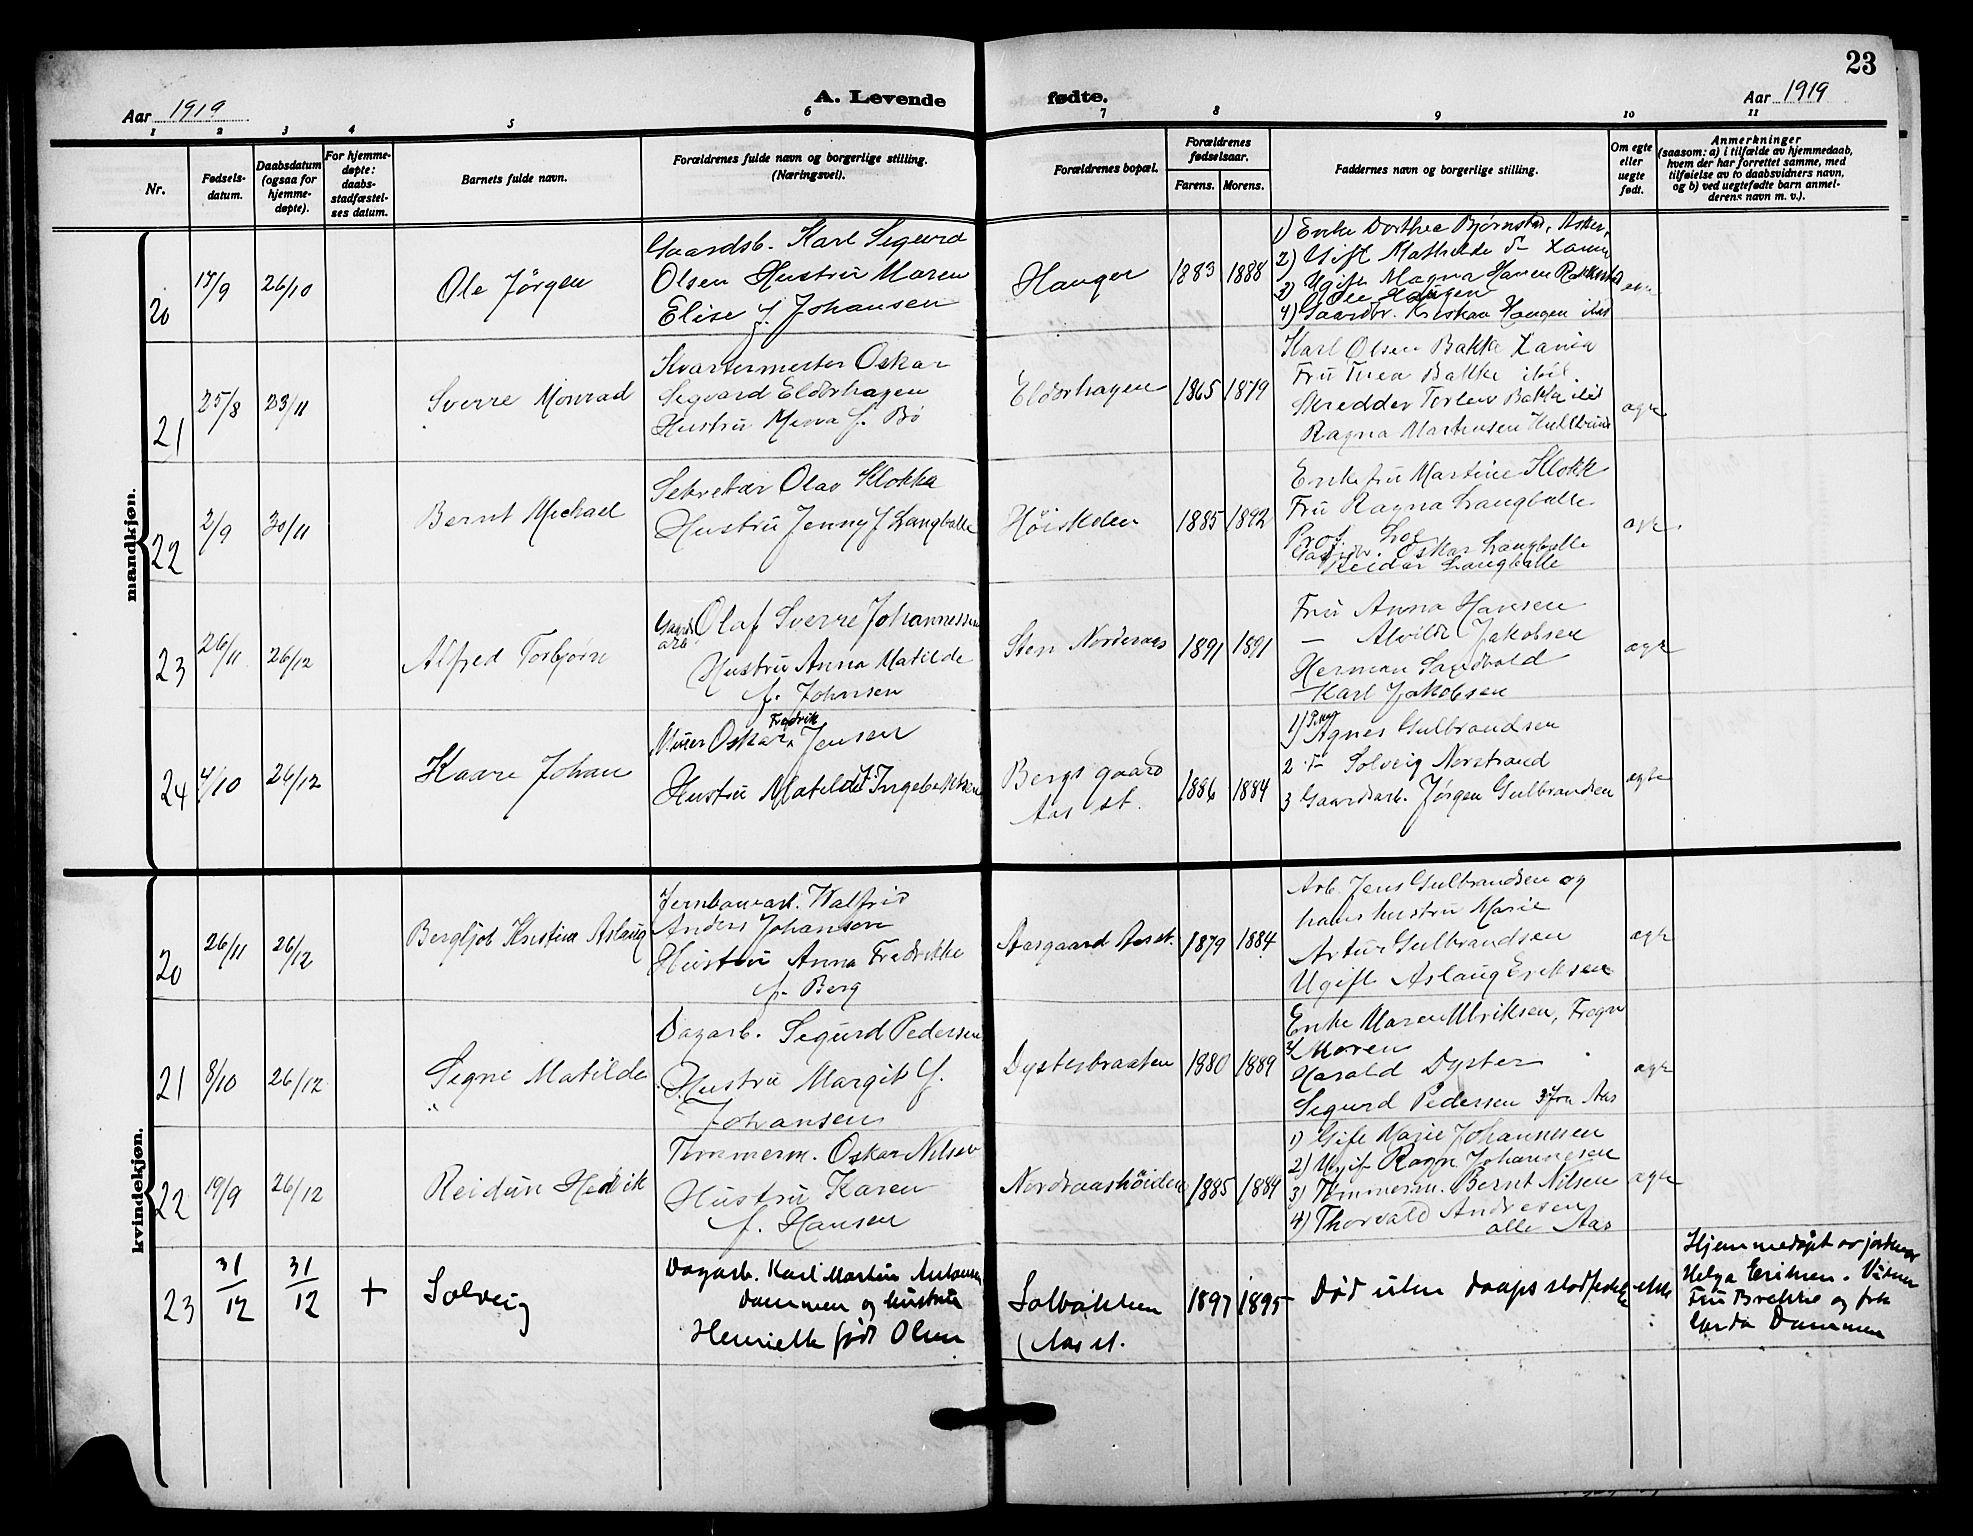 23
Aar 1919
A. Levende fødte.
Aar 1919
1 2 3 4 5 6 7 8 9 10 11
Nr.
Fødsels-
datum.
Daabsdatum
(ogsaa for
hjemme-
døpte).
For hjemme-
døpte:
daabs-
stadfæstel-
ses datum.
Barnets fulde navn.
Forældrenes fulde navn og borgerlige stilling.
(Næringsvei).
Forældrenes bopæl.
Forældrenes
fødselsaar.
Farens. Morens.
Faddernes navn og borgerlige stilling.
Om egte
eller
uegte
født.
Anmerkninger
(saasom: a) i tilfælde av hjemmedaab,
hvem der har forrettet samme, med
tilføielse av to daabsvidners navn,
og b) ved uegtefødte barn anmel-
derens navn m. v.).
mandkjøn.
20
26/10
Ole Jørgen
Gaardsb. Karl Sigurd
Olsen Hustru Maren
Elise f. Johansen
Hauger
1883 1888
1) Enke Dorthea Bjørnstad, Asker,
2) Gift Mathilde
3) Ugift Magna Hansen
4) Gaardbr. Kristian Haugen
21
25/8
23/11
Sverre Monrad
Kvartermester Oskar
Sigvard Eldorhagen
Hustru Mina f. Bø
Eldorhagen
1865 1879
Karl Olsen Bakke
Fru Thea Bakke ibid.
Skredder Torleiv Bakke ibid
Ragna Martinsen
egte
22
2/9
30/11
Bernt Michael
Sekretær Olav Klokke
Hustru Jenny f. Langballe
Høiskolen
1885 1892
Enkefru Martine Klokk
Fru Ragna Langballe
Prof. Loe
Gaardbr. Oskar Langballe
Reidar Langballe
egte
23
26/11
26/12
Alfred Torbjørn
Gaards
arb. Olaf Sverre Johannessen
Hustru Anna Matilde
f. Johnsen
Sten Norderaas
1891 1891
Fru Anna Hansen
— Alvilde Jakobsen
Herman Sandvold
Karl Jakobsen
egte
24
4/10
26/12
Kaare Johan
Murer Oskar Fredrik Jensen
Hustru Matilde f. Ingebriktsen
Bergs gaard
Aas st.
1886 1884
1) Pike Agnes Gulbrandsen
2 Solveig Norstrand
3 Gaardsarb. Jørgen Gulbrandsen
egte
kvindekjøn.
20
26/11
26/12
Bergljot Kristine Aslaug
Jernbanearb. Walfrid
Anders Johansen
Hustru Anna Fredrikke
f. Berg
Aasgaard Aas st.
1879 1884
Arb. Jens Gulbrandsen og
hans hustru Marie
Artur Gulbrandsen
Ugift Aslaug Eriksen
egte
21
8/10
26/12
Signe Matilde
Dagarb. Sigurd Pedersen
Hustru Margit f.
Johansen
Dystesbraaten
1880 1889
Enke Maren Ulriksen, Frogn
Moren
Harald Dyster
Sigurd Pedersen 3 fra Aas
egte
22
19/9
26/12
Reidun Hedvik
Tømmerm. Oskar Nilsen
Hustru Karen
f. Hansen
Nordraashöiden
1885 1884
1) Gift Marie Johannesen
2) Ugift Ragn Johannesen
3) Tømmerm. Bernt Nilsen
4) Thorvald Andresen
alle Aas
egte
23
31/12
31/12
+
Solveig
Dagarb. Karl Martin Antonsen
Dammen og hustru
Henriette født Olsen
Solbakken
Aas st.
1897 1895
Død uten daapsstadfestelse
ekte
Hjemmedøpt av jordmor
Helga Eriksen. Vidner
Fru Brekke og frk
Gerda Dammen